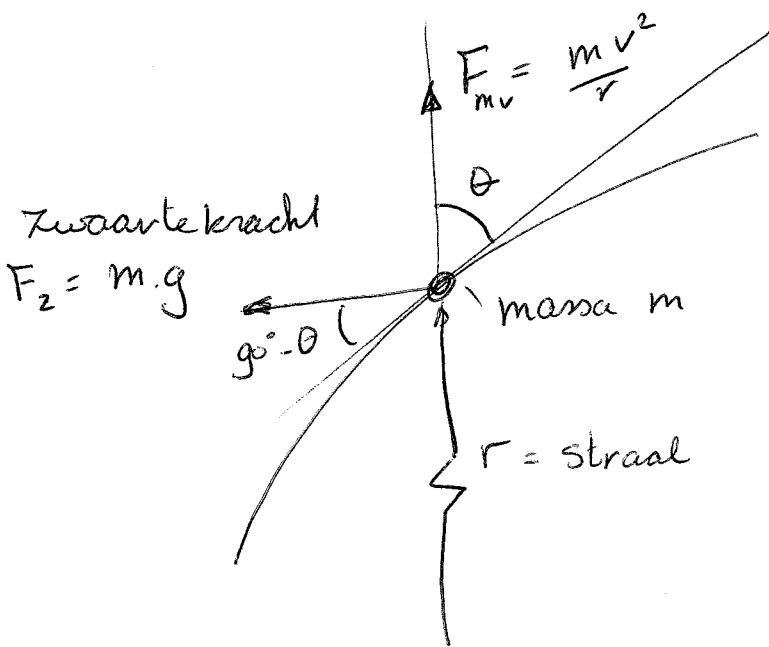 F_mv = mv²/r
θ
zwaartekracht
F_z = m.g
90°-θ
massa m
r = straal